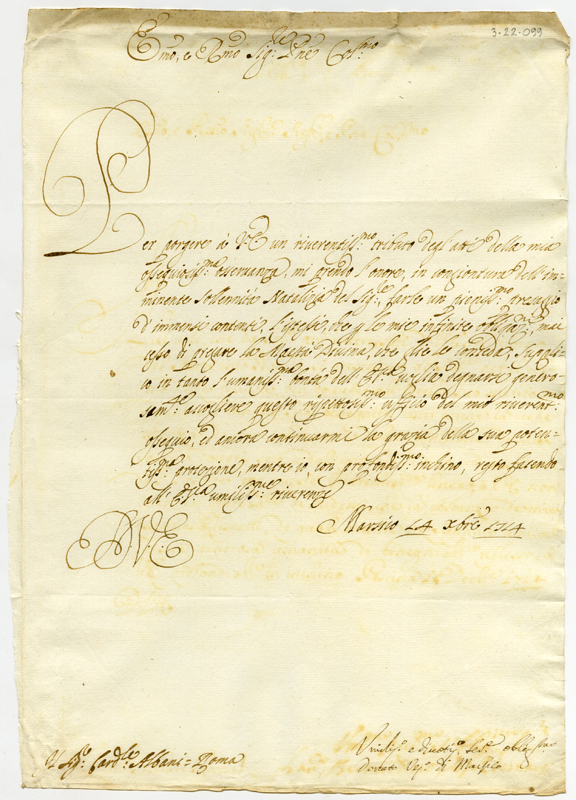 3-22-099
Emo, e Rmo Sig:re Pne Col:mo
Per porgere à V:E un riverentiss:mo tributo degl'atti della mia
ossequiosiss:ma osservanza, mi prendo l'onore, in congiontura dell'im-
minente sollennità Natalizia del Sig:re, farle un pieniss:mo presaggio
d'immensi contenti, l'istesi, che p le mie infinite obligaz:ni, mai
cesso di pregare la Maestà Divina, che glie le conceda; Suppli-
co in tanto l'umaniss:ma bontà dell'E:V:a voglia degnarsi genero-
sam:te accogliere questo rispettosiss:mo uffizio del mio riverent:mo
osseguio, ed ancora continuarmi la grazia della sua poten-
tiss:ma protezione, mentre io, con profondiss:mo inchino, resto facendo
all'E:V:a umiliss:me riverenze
Marsico 24 Xbre 1714
D V:E
Sig:r Card:le Albani = Roma
Umiliss:o e devotiss:o Ser:e oblig:mo
Donato Ves:o di Marsico